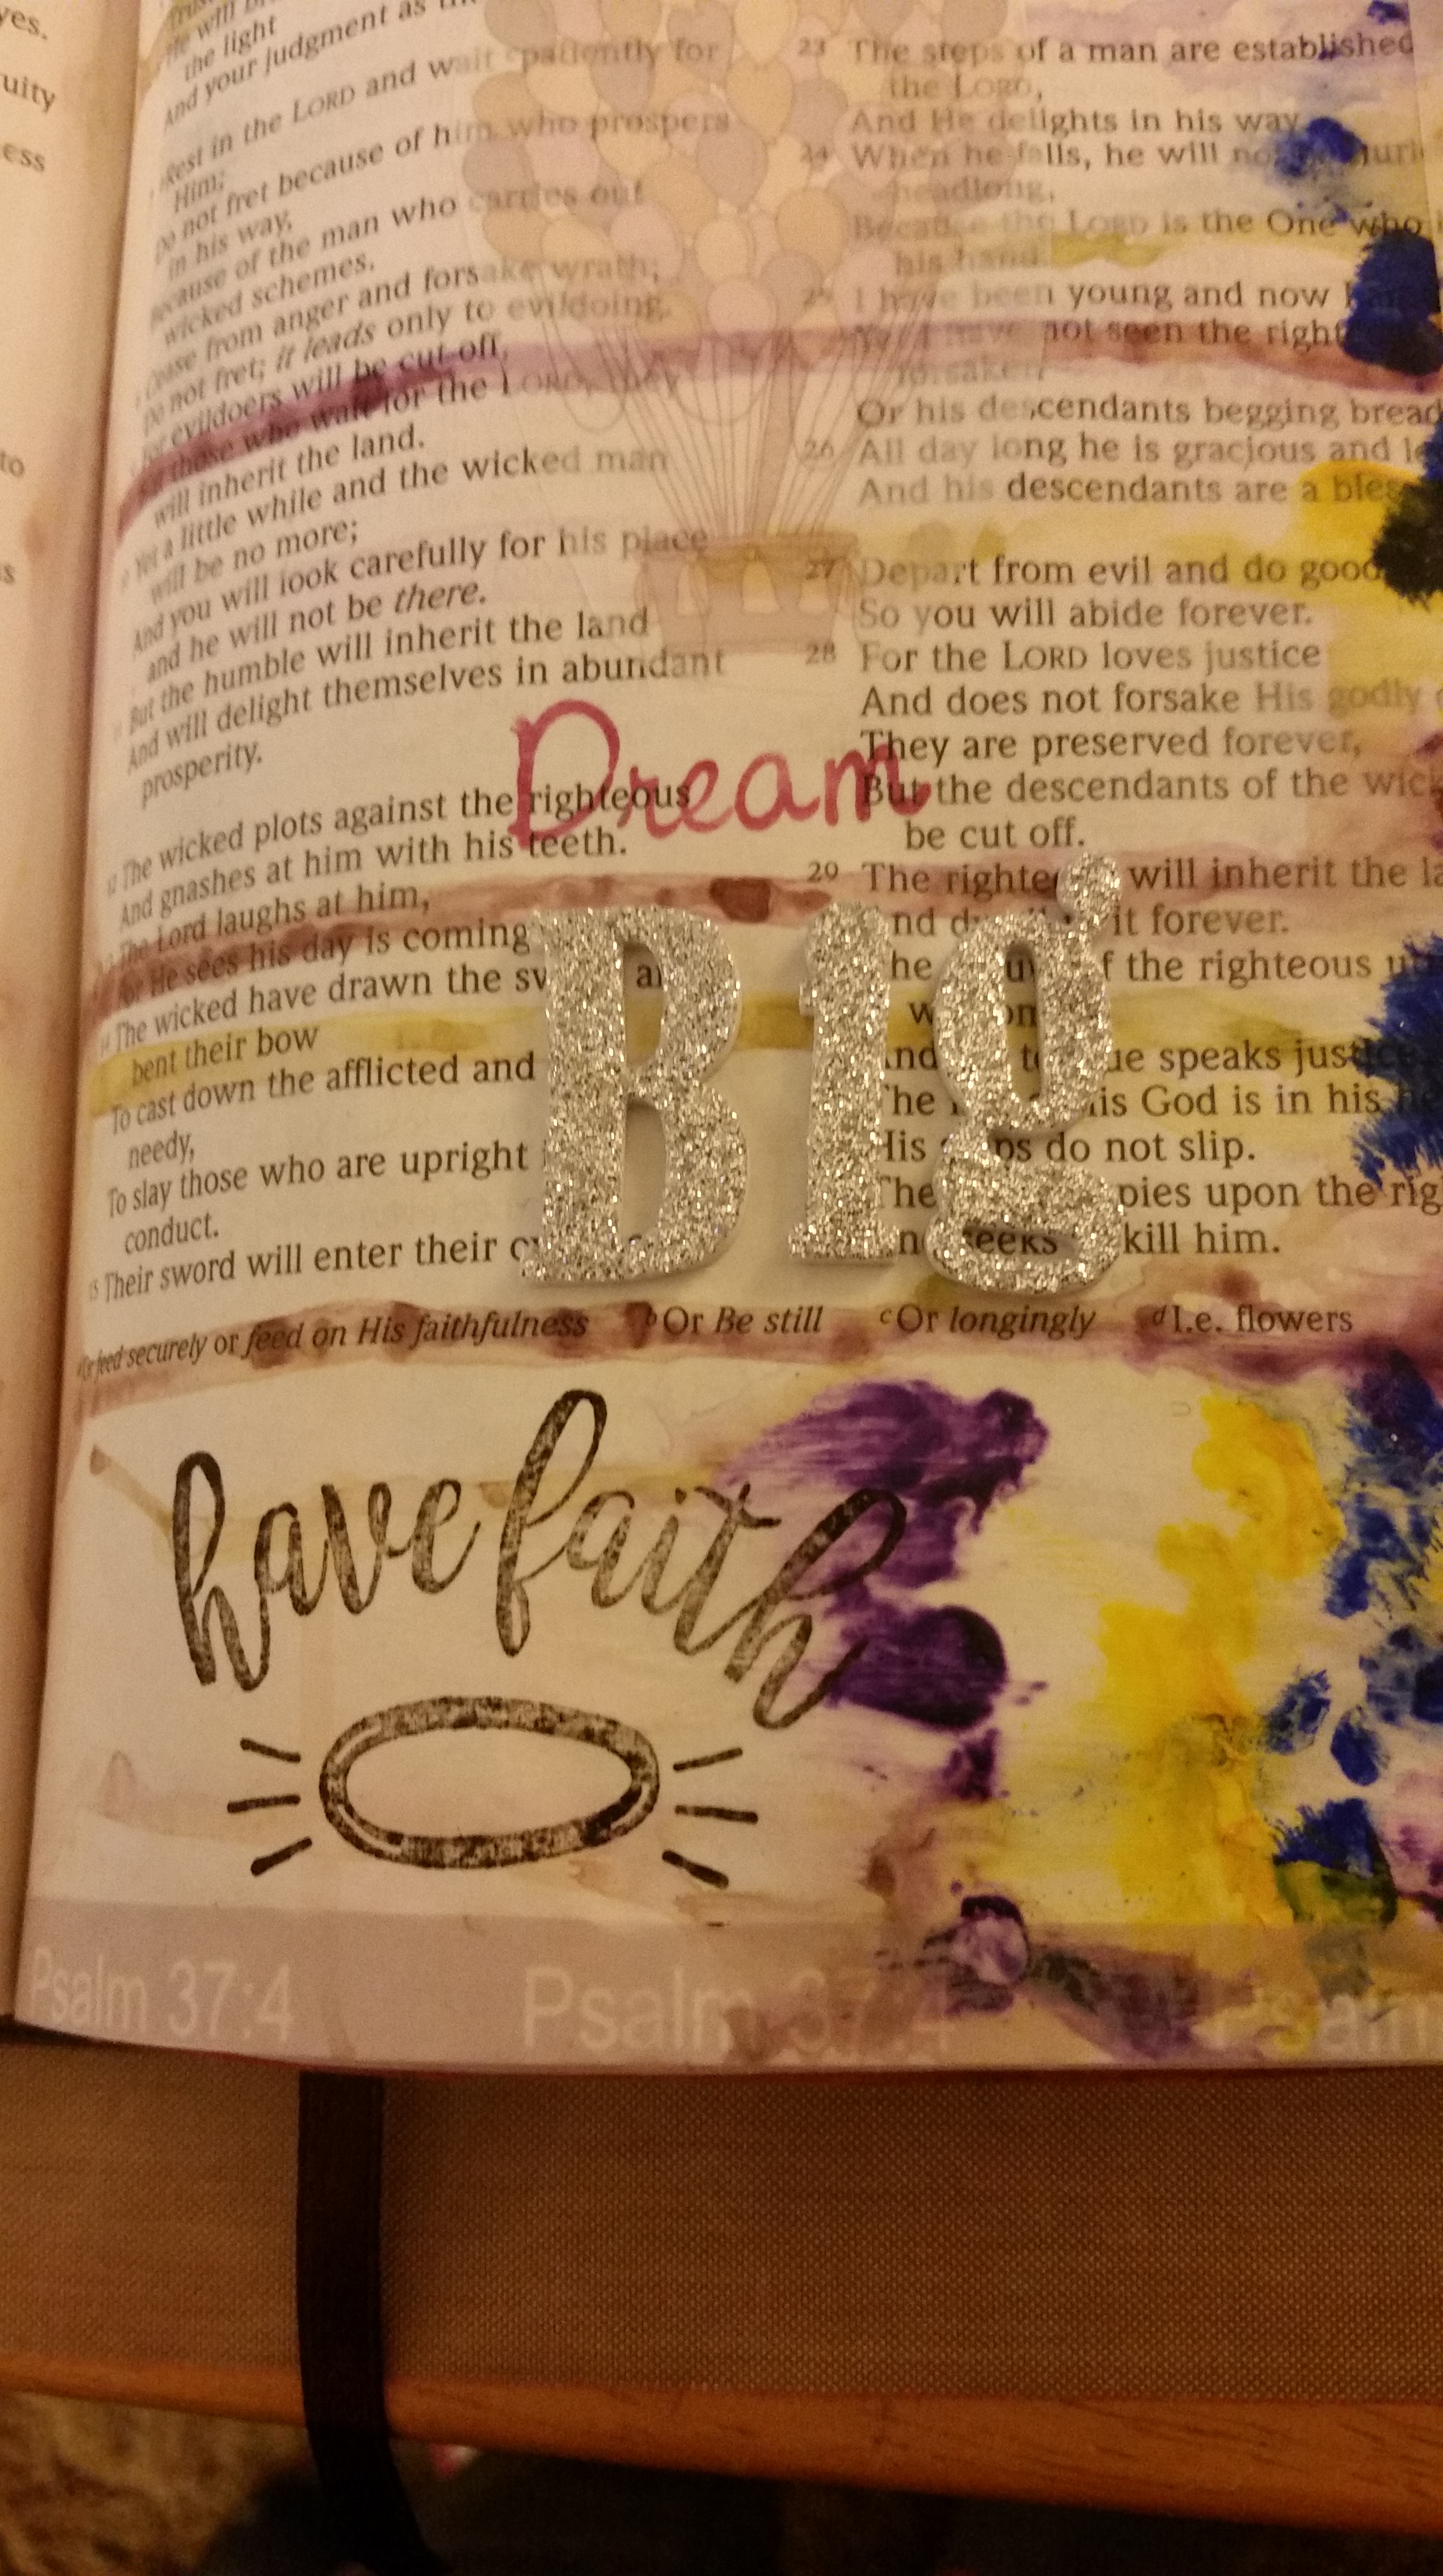 yes.
uity
ess
to
the light
And your judgment as
Rest in the LORD and wait patiently for
Him;
Do not fret because of him who prospers
in his way,
Because of the man who carries out
wicked schemes.
Cease from anger and forsake wrath;
Do not fret; it leads only to evildoing.
For evildoers will be cut off,
But those who wait for the LORD, they
will inherit the land.
Yet a little while and the wicked man
will be no more;
And you will look carefully for his place
and he will not be there.
But the humble will inherit the land
And will delight themselves in abundant
prosperity.
12 The wicked plots against the righteous
And gnashes at him with his teeth.
The Lord laughs at him,
For He sees his day is coming
14 The wicked have drawn the sw
bent their bow
To cast down the afflicted and
needy,
To slay those who are upright
conduct.
15 Their sword will enter their
23 The steps of a man are established
the LORD,
And He delights in his way.
24 When he falls, he will not
headlong,
Because the LORD is the One who
his hand.
25 I have been young and now
Yet I have not seen the right
forsaken
Or his descendants begging bread
26 All day long he is gracious and le
And his descendants are a bles
27 Depart from evil and do good
So you will abide forever.
28 For the LORD loves justice
And does not forsake His godly
They are preserved forever,
But the descendants of the wick
be cut off.
29 The righte will inherit the la
it forever.
f the righteous
speaks justice
is God is in his
His do not slip.
The pies upon the rig
seeks kill him.
Dream
Big
feed securely or feed on His faithfulness b Or Be still c Or longingly d I.e. flowers
have faith
Psalm 37:4 Psalm 37:4 Psalm